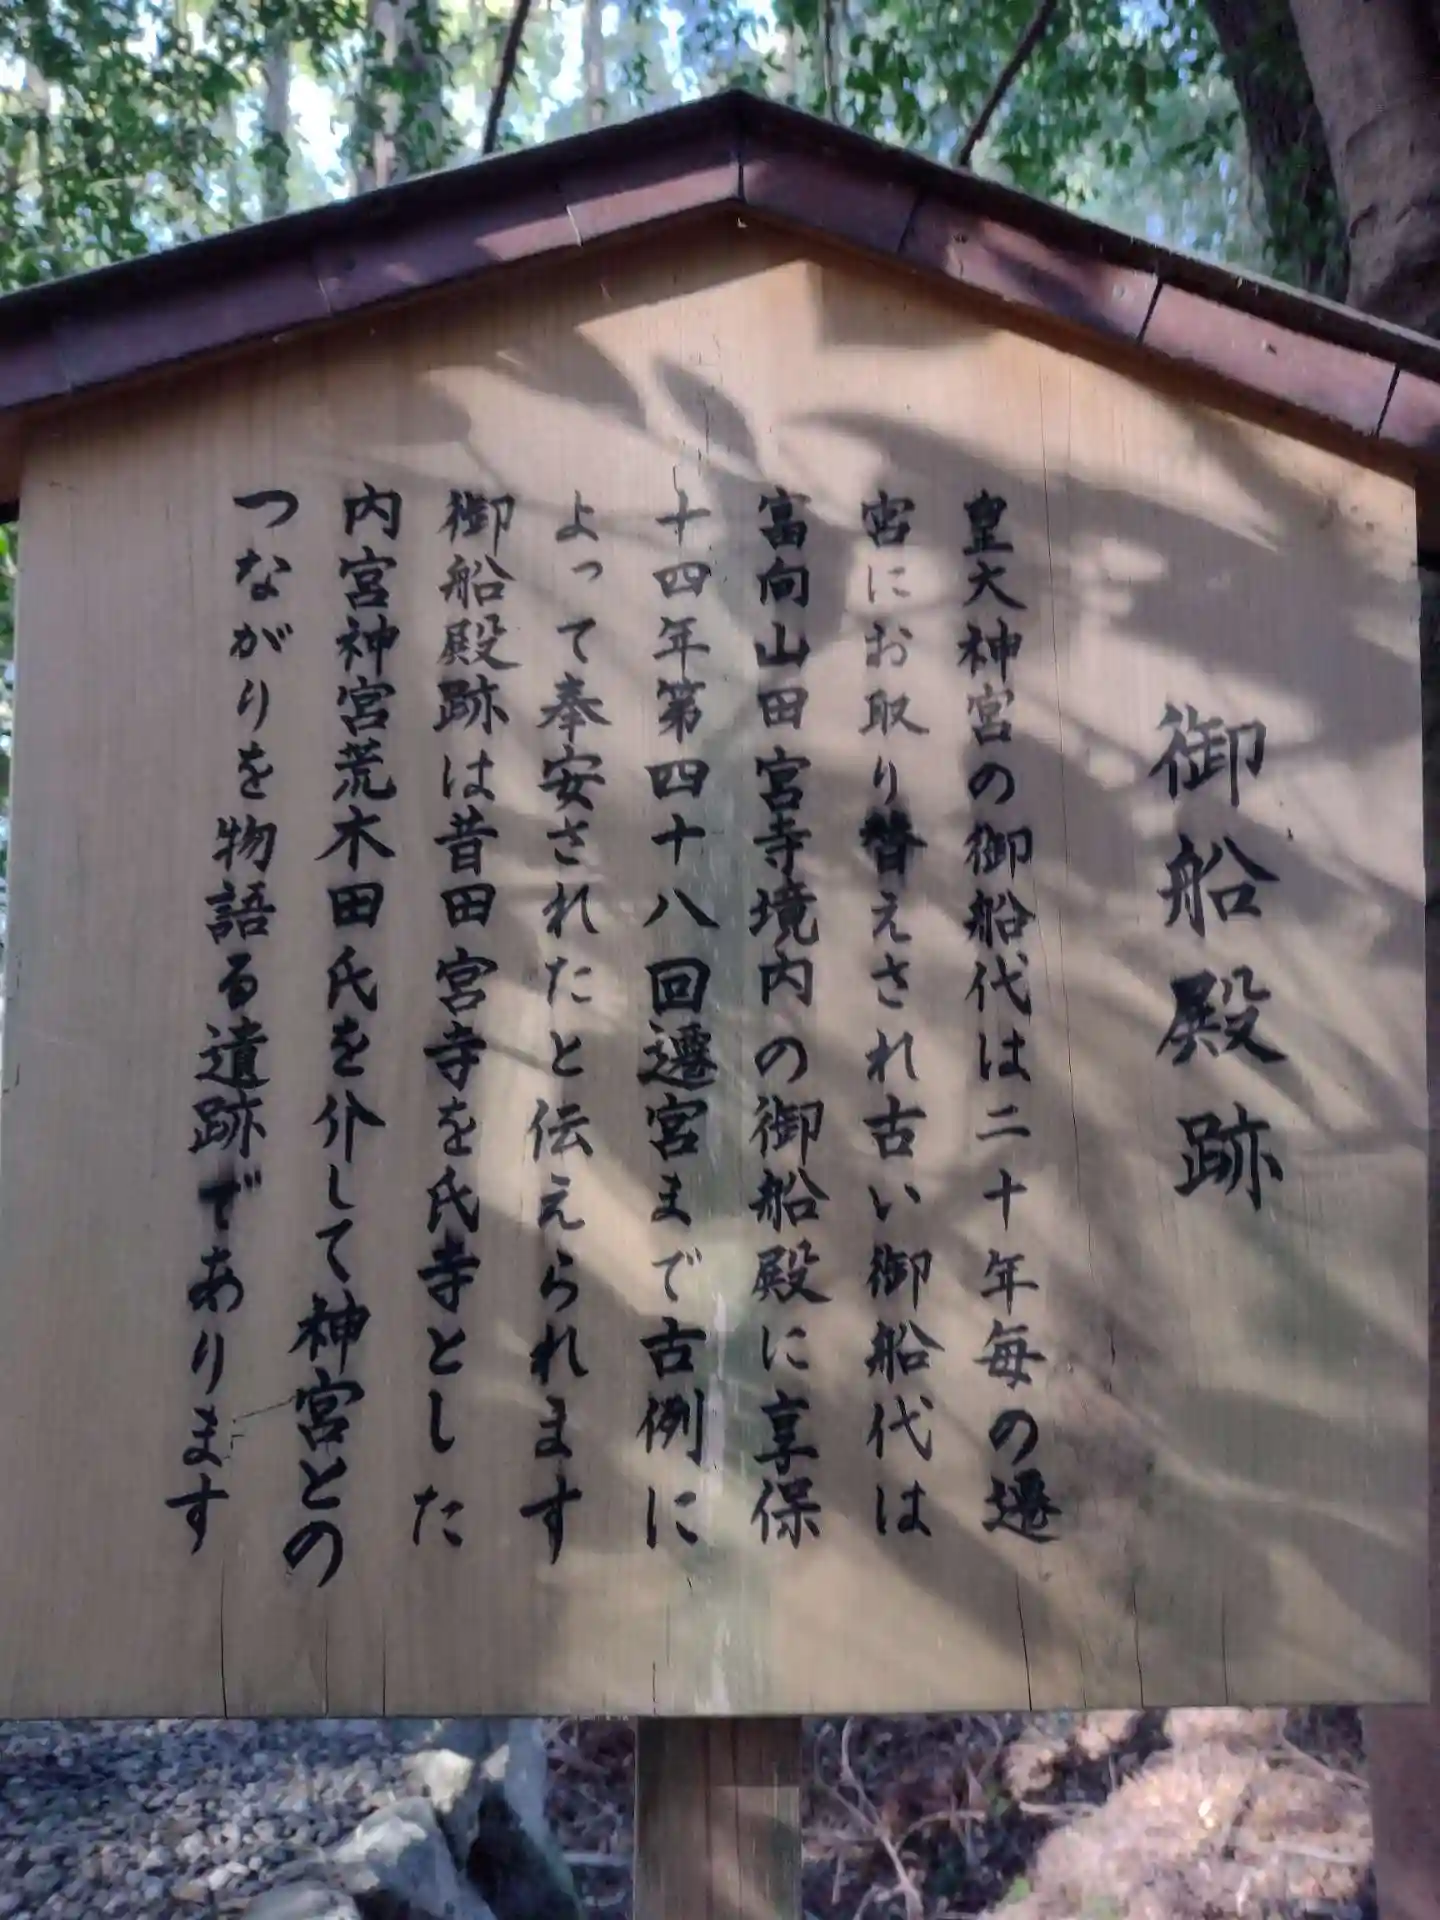 御船殿跡
皇大神宮の御船代は二十年毎の遷
宮にお取り替えされ古い御船代は
富向山田宮寺境内の御船殿に享保
十四年第四十八回遷宮まで古例に
よって奉安されたと伝えられます
御船殿跡は昔田宮寺を氏寺とした
内宮神宮荒木田氏を介して神宮との
つながりを物語る遺跡であります